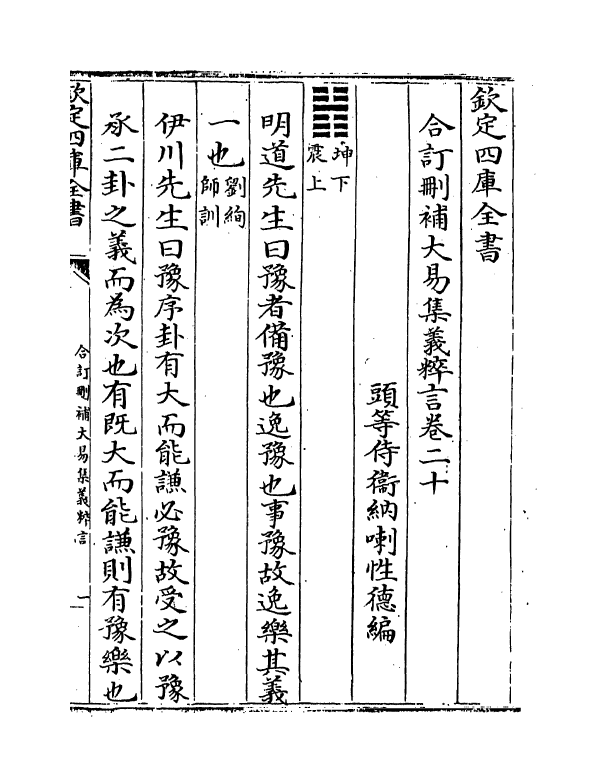 欽定四庫全書
合訂刪補大易集義粹言卷二十
頭等侍衞納喇性德編
坤下
震上
明道先生曰豫者備豫也逸豫也事豫故逸樂其義
一也劉絢
師訓
伊川先生曰豫序卦有大而能謙必豫故受之以豫
承二卦之義而為次也有既大而能謙則有豫樂也
欽定四庫全書
合訂刪補大易集義粹言
一